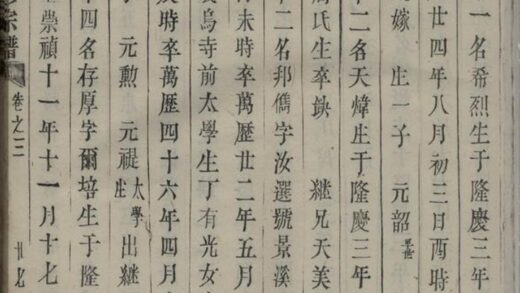 一名希烈生于隆慶三年
廿四年八月初三日酉時
嫁 生一子 元韶
二名天煒生于隆慶三年
周氏生卒缺 繼兄天美
二名邦儁字汝選號景溪
未時卒萬歷廿二年五月
烏寺前太學生丁有光女
時卒萬歷四十六年四月
子 元勲 元禔 太學生 出繼
四名存厚字爾培生于隆
崇禎十一年十一月十七
宗譜 卷之三 廿九